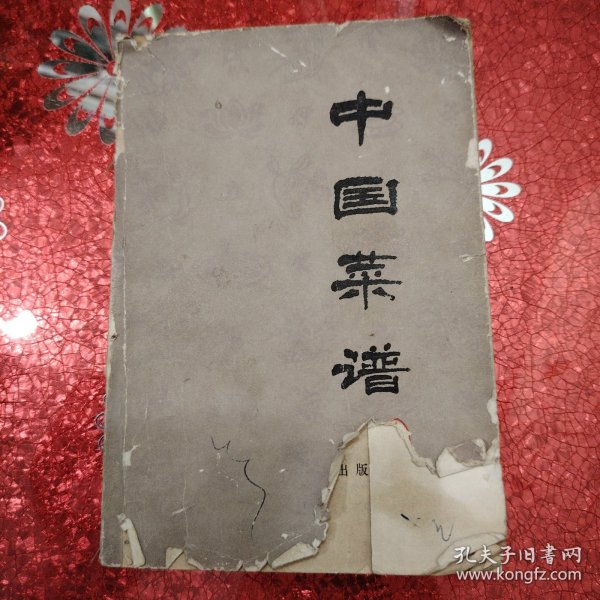 中国菜谱
出版
孔夫子旧书网
www.kongfz.com